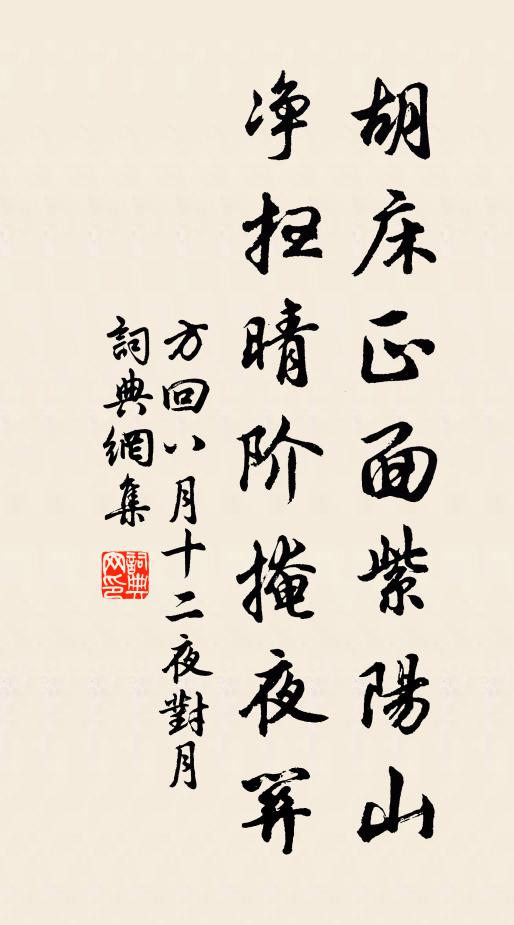 胡床正面紫陽山
净扫晴阶掩夜關
方回八月十二夜對月
詞典網集
詞典
网印